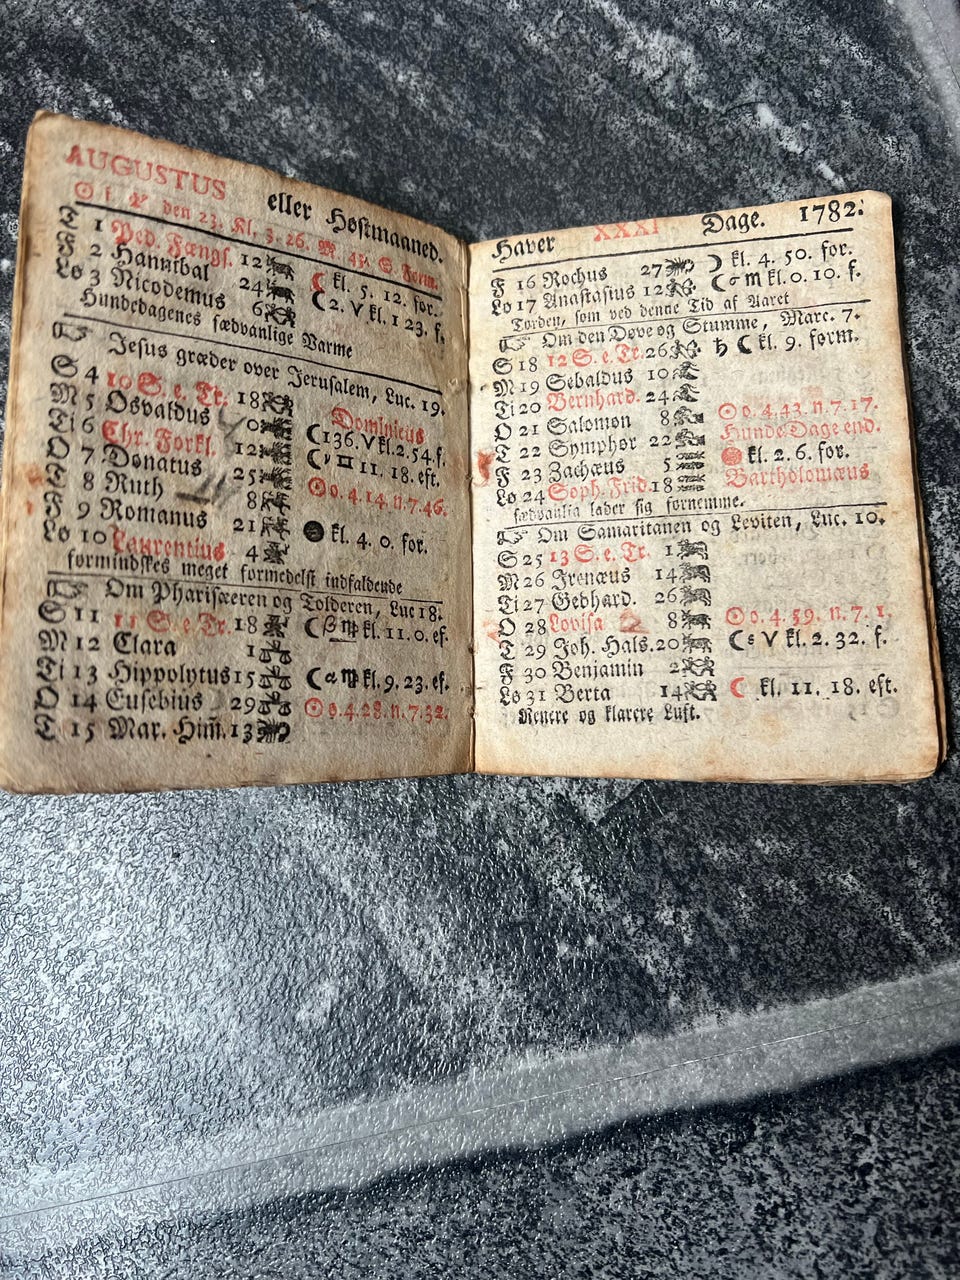 AUGUSTUS eller Høstmaaned.
☉ i ♍ den 23. Kl. 3. 26. M. 43. S. Form.
T 1 Ped. Fængs. 12 ☾ kl. 5. 12. for.
F 2 Hannibal 24 ☾ 2. V kl. 1 23. f.
Lo 3 Nicodemus 6
Hundedagenes sædvanlige Varme
Jesus græder over Jerusalem, Luc. 19.
S 4 10 S. e. Tr. 18 Dominicus
M 5 Osvaldus 0 ☾ 136. V kl. 2. 54. f.
Ti 6 Chr. Forkl. 12 ☾ γ ♊ 11. 18. eft.
O 7 Donatus 25 ☉ o. 4. 14. n. 7. 46.
T 8 Ruth 8
F 9 Romanus 21 ● kl. 4. 0. for.
Lo 10 Laurentius 4
formindskes meget formedelst indfaldende
Om Pharisæeren og Tolderen, Luc 18.
S 11 11 S. e. Tr. 18 ☾ β ♍ kl. 11. 0. ef.
M 12 Clara 1
Ti 13 Hippolytus 15 ☾ α ♍ kl. 9. 23. ef.
O 14 Eusebius 29 ☉ o. 4. 28. n. 7. 32.
T 15 Mar. Him̄. 13
Haver XXXI Dage. 1782.
F 16 Rochus 27 ☽ kl. 4. 50. for.
Lo 17 Anastasius 12 ☾ σ ♏ kl. 0. 10. f.
Torden, som ved denne Tid af Aaret
Om den Døve og Stumme, Marc. 7.
S 18 12 S. e. Tr. 26 ♄ ☾ kl. 9. form.
M 19 Sebaldus 10
Ti 20 Bernhard. 24
O 21 Salomon 8 ☉ o. 4. 43. n. 7. 17.
T 22 Symphor 22 Hunde-Dage end.
F 23 Zachæus 5 kl. 2. 6. for.
Lo 24 Soph. Frid 18 Bartholomæus
sædvanlig lader sig fornemme.
Om Samaritanen og Leviten, Luc. 10.
S 25 13 S. e. Tr. 1
M 26 Irenæus 14
Ti 27 Gebhard. 26
O 28 Lovisa 8 ☉ o. 4. 59. n. 7. 1.
T 29 Joh. Hals. 20 ☾ s V kl. 2. 32. f.
F 30 Benjamin 2
Lo 31 Berta 14 ☾ kl. 11. 18. eft.
Renere og klarere Luft.